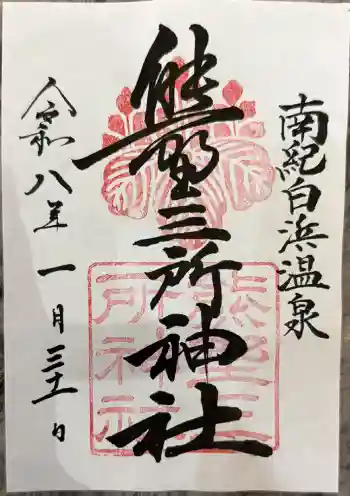 南紀白浜温泉
熊野三所神社
令和八年一月三十一日
熊野三所神社